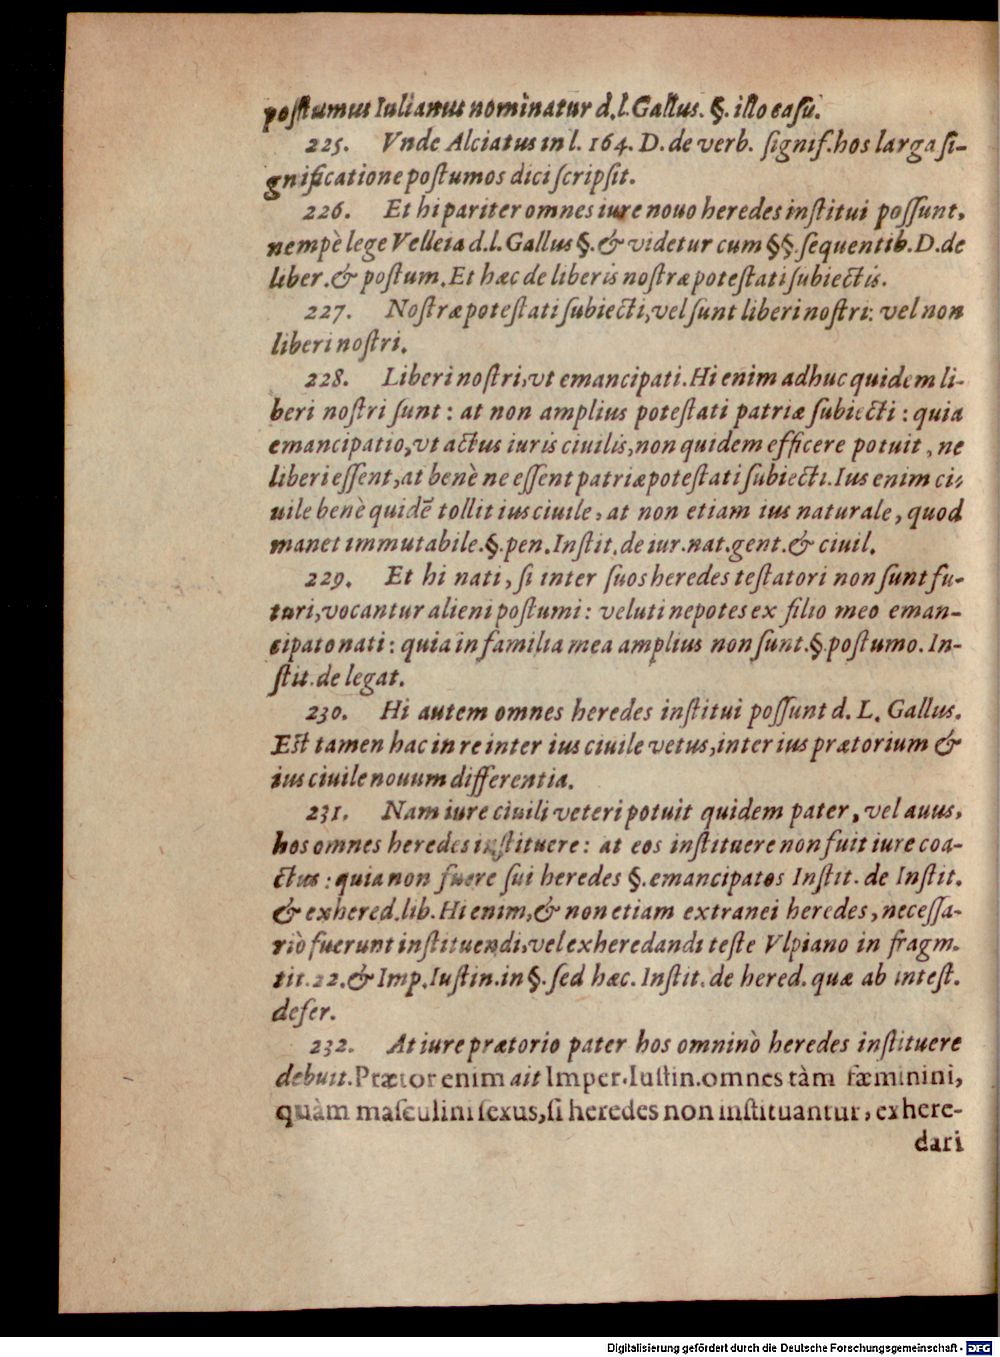 poſtumus Iulianus nominatur d.l. Gallus. §. illo caſu.
225. Vnde Alciatus in l. 164. D. de verb. ſignif. hos larga ſi-
gnificatione poſtumos dici ſcripſit.
226. Et hi pariter omnes iure nouo heredes inſtitui poſſunt,
nempè lege Velleia d.l. Gallus §. & videtur cum §§. ſequentib. D. de
liber. & poſtum. Et hæc de liberis noſtræ poteſtati ſubiectis.
227. Noſtræ poteſtati ſubiecti, vel ſunt liberi noſtri: vel non
liberi noſtri.
228. Liberi noſtri, vt emancipati. Hi enim adhuc quidem li-
beri noſtri ſunt: at non amplius poteſtati patriæ ſubiecti: quia
emancipatio, vt actus iuris ciuilis, non quidem efficere potuit, ne
liberi eſſent, at benè ne eſſent patriæ poteſtati ſubiecti. Ius enim ci-
uile benè quidẽ tollit ius ciuile, at non etiam ius naturale, quod
manet immutabile. §. pen. Inſtit. de iur. nat. gent. & ciuil.
229. Et hi nati, ſi inter ſuos heredes teſtatori non ſunt fu-
turi, vocantur alieni poſtumi: veluti nepotes ex filio meo eman-
cipato nati: quia in familia mea amplius non ſunt. §. poſtumo. In-
ſtit. de legat.
230. Hi autem omnes heredes inſtitui poſſunt d. L. Gallus.
Eſt tamen hac in re inter ius ciuile vetus, inter ius prætorium &
ius ciuile nouum differentia.
231. Nam iure ciuili veteri potuit quidem pater, vel auus,
hos omnes heredes inſtituere: at eos inſtituere non fuit iure coa-
ctus: quia non fuere ſui heredes §. emancipatos Inſtit. de Inſtit.
& exhered. lib. Hi enim, & non etiam extranei heredes, neceſſa-
riò fuerunt inſtituendi, vel exheredandi teſte Vlpiano in fragm.
tit. 22. & Imp. Iuſtin. in §. ſed hæc. Inſtit. de hered. quæ ab inteſt.
defer.
232. At iure prætorio pater hos omninò heredes inſtituere
debuit. Prætor enim ait Imper. Iuſtin. omnes tàm fæminini,
quàm maſculini ſexus, ſi heredes non inſtituantur, exhere-
dari
Digitalisierung gefördert durch die Deutsche Forschungsgemeinschaft - DFG